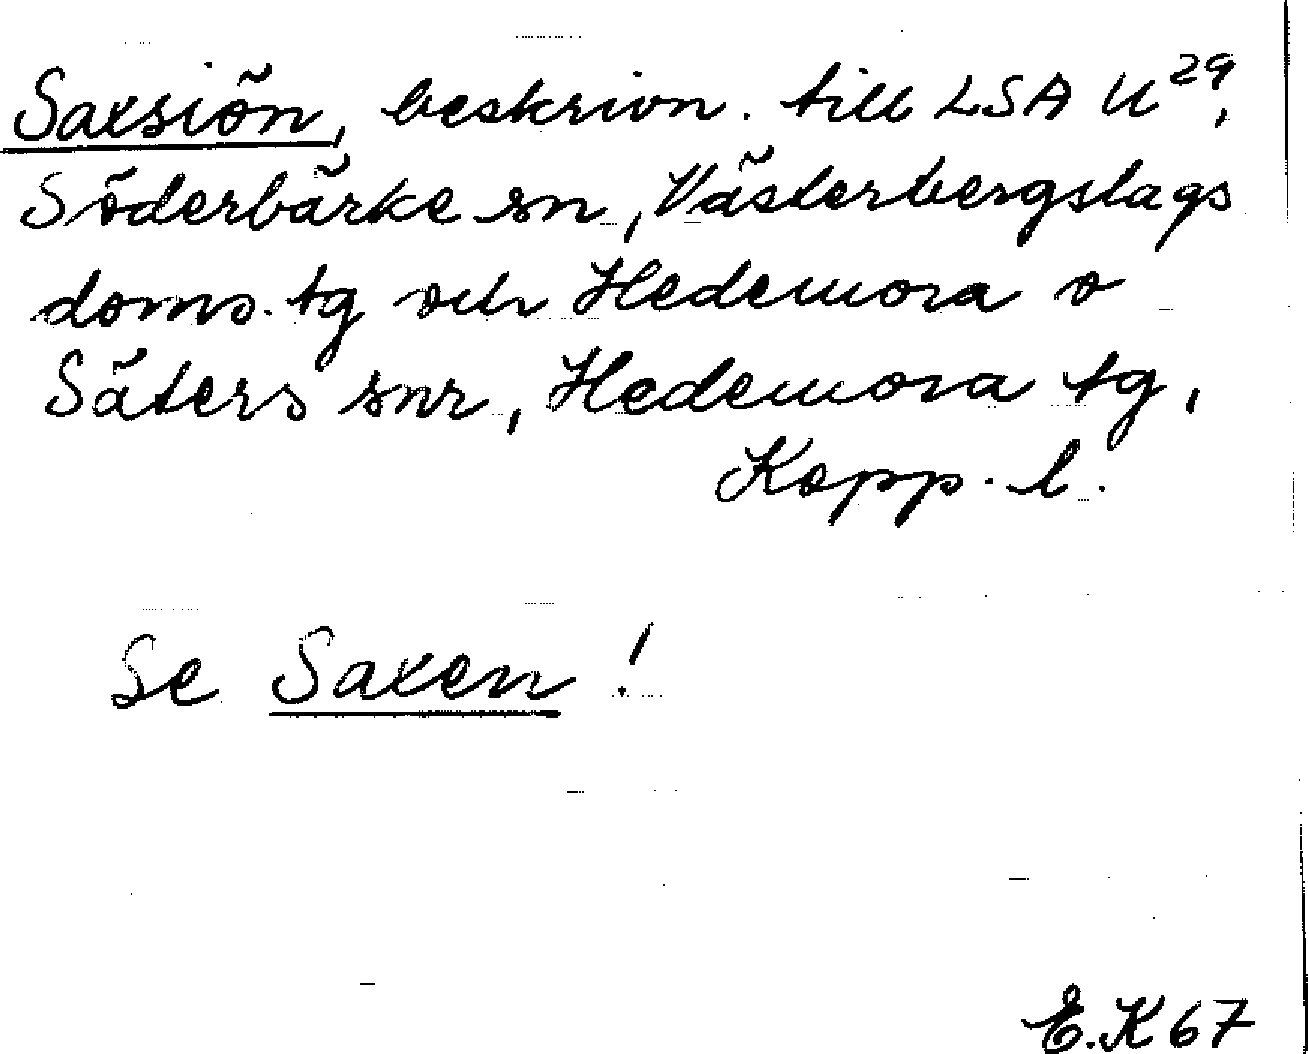 Saxsiön, beskrivn. till LSA U29,
Söderbärke sn, Västerbergslags
doms. tg och Hedemora o
Säters snr, Hedemora tg,
Kopp. l.
Se Saxen!
E.K 67